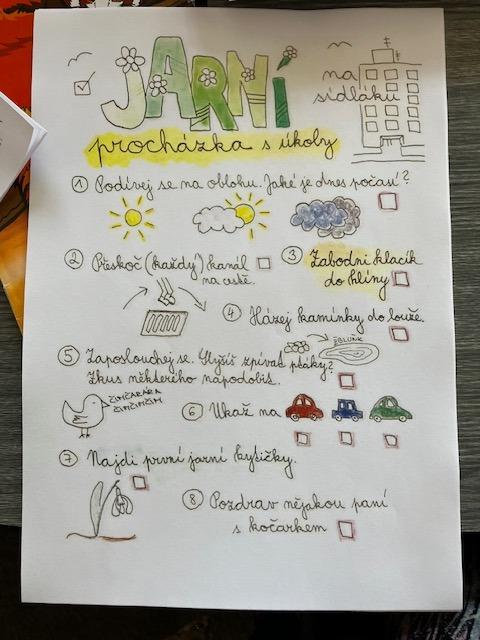 JARNÍ
na
sídláku
procházka s úkoly
① Podívej se na oblohu. Jaké je dnes počasí?
② Přeskoč (každý) kanál
na cestě.
③ Zabodni klacík
do hlíny
④ Házej kamínky do louže.
ŽBLUNK
⑤ Zaposlouchej se. Slyšíš zpívat ptáky?
Zkus některého napodobit.
ČIMČARARA
ČIMČIMČIM
⑥ Ukaž na
⑦ Najdi první jarní kytičky.
⑧ Pozdrav nějakou paní
s kočárkem